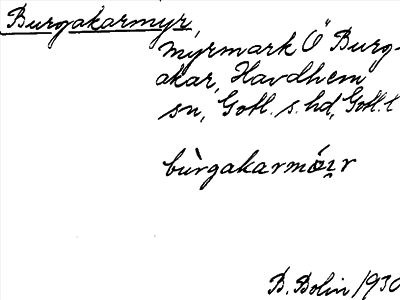 Burgakarmyr,
myrmark Ö Burg-
akar, Havdhem
sn, Gotl. s. hd, Gotl. l
bùrgakarmóı̯r
B. Bolin 1930